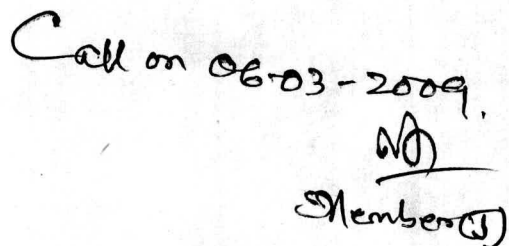 Call on 06-03-2009.
Member(J)